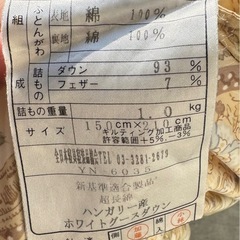 組成
ふとんがわ 表地 綿 100%
裏地 綿 100%
詰もの ダウン 93%
フェザー 7%
詰もの重量 kg
サイズ 150cm×210cm
キルティング加工商品
許容範囲+5%―3%
03-3281-2679
YN-6035
新基準適合製品
超長綿
ハンガリー産
ホワイトグースダウン